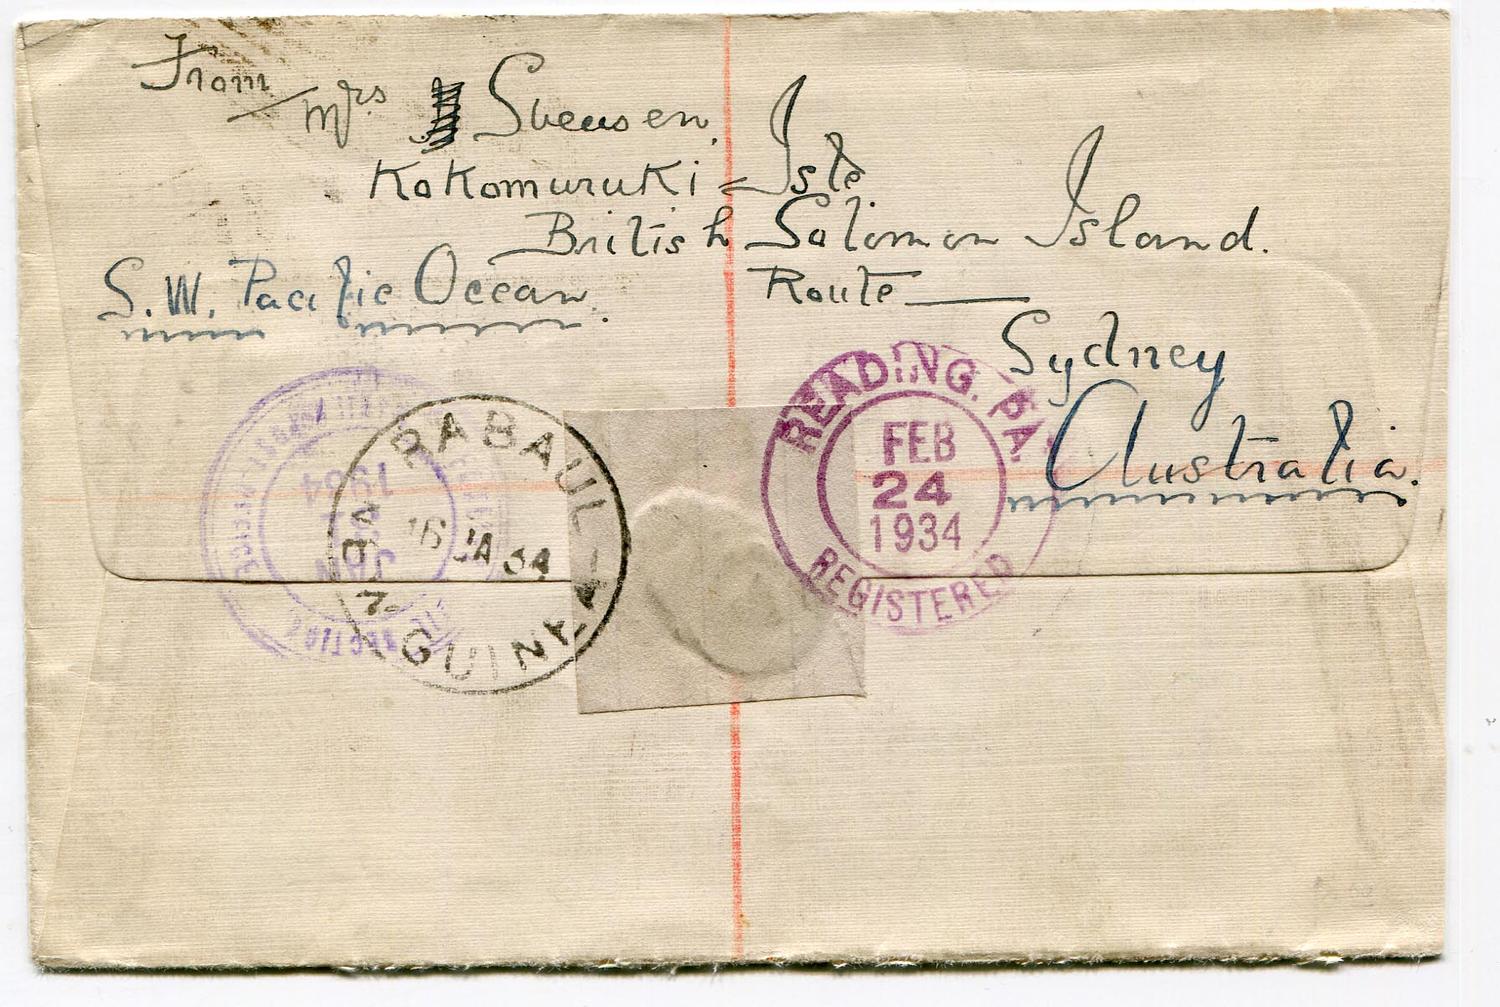 From
Mrs Svensen,
Kokomuruki = Isle.
British Solomon Island.
S.W. Pacific Ocean.
Route
Sydney
Australia.
RABAUL
16 JA 34
N. GUINEA
READING, PA.
FEB
24
1934
REGISTERED
JAN
1934